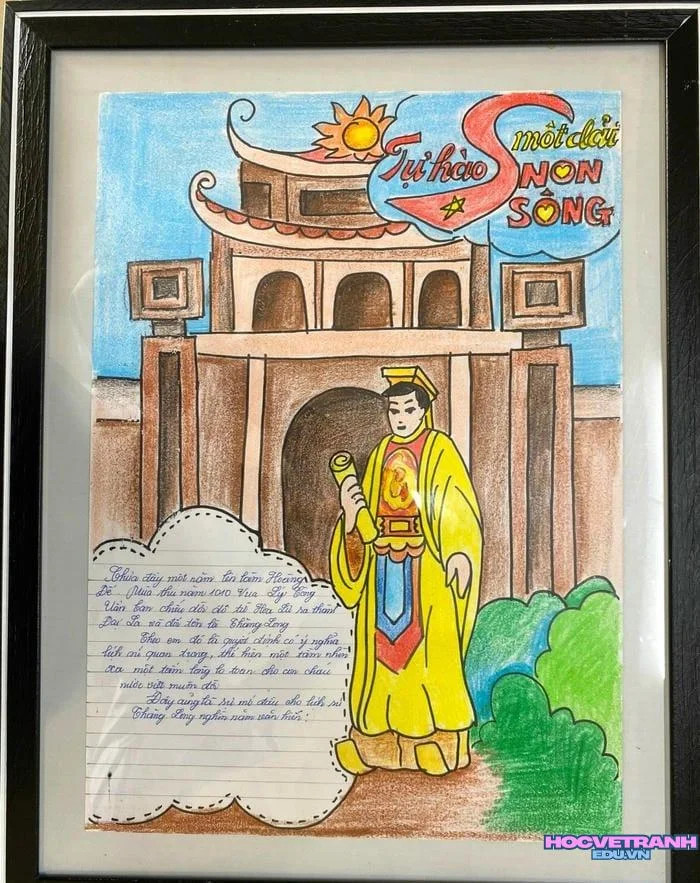 Tự hào
một dải
NON
SÔNG
Chưa đầy một năm lên làm Hoàng
Đế. Mùa thu năm 1010 Vua Lý Công
Uẩn ban chiếu dời đô từ Hoa Lư ra thành
Đại La và đổi tên là Thăng Long
Theo em đó là quyết định có ý nghĩa
lịch sử quan trọng, thể hiện một tầm nhìn
xa một tấm lòng lo toan cho con cháu
nước việt muôn đời
Đây cũng là sự mở đầu cho lịch sử
Thăng Long nghìn năm văn hiến.
HOCVETRANH
EDU.VN